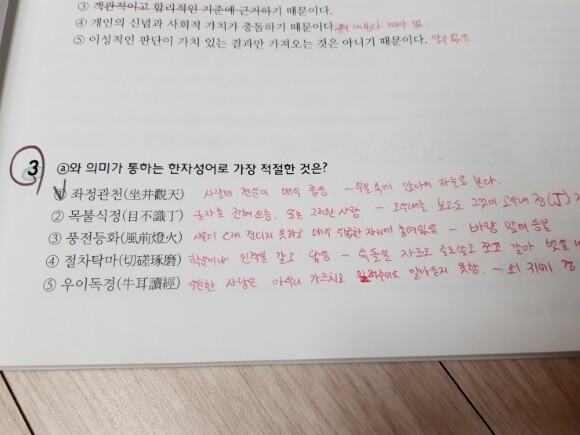 ③ 객관적이고 합리적인 기준에 근거하기 때문이다.
④ 개인의 신념과 사회적 가치가 충돌하기 때문이다.
⑤ 이성적인 판단이 가치 있는 결과만 가져오는 것은 아니기 때문이다.
3 ⓐ와 의미가 통하는 한자성어로 가장 적절한 것은?
① 좌정관천(坐井觀天) 사람의 견문이 매우 좁음. – 우물 속에 앉아서 하늘을 본다.
② 목불식정(目不識丁) 글자를 전혀 모름. 또는 그러한 사람. – 고무래를 보고도 그것이 고무래 정(丁)
③ 풍전등화(風前燈火) 사물이 오래 견디지 못하고 매우 위급한 자리에 놓여있음 – 바람 앞의 등불
④ 절차탁마(切磋琢磨) 학문이나 인격을 갈고 닦음 – 옥돌을 자르고 줄로 쓸고 쪼고 갈아 빛을 내
⑤ 우이독경(牛耳讀經) 우둔한 사람은 아무리 가르치고 일러주어도 알아듣지 못함. – 쇠 귀에 경